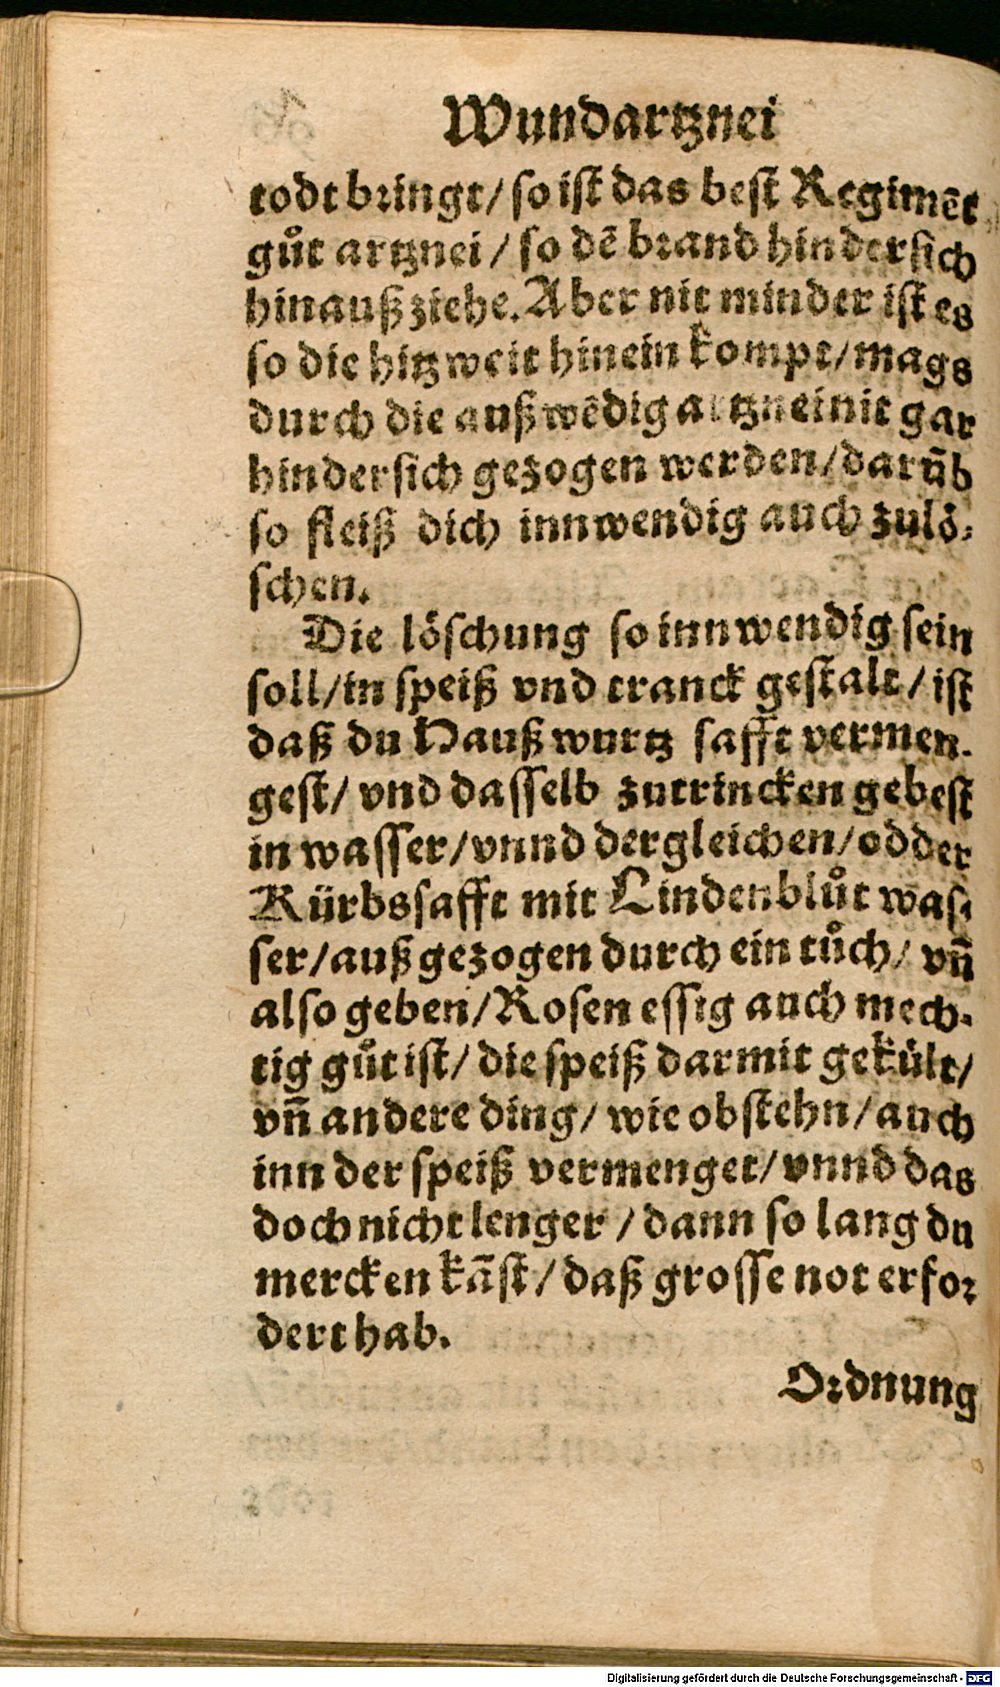 Wundartznei
todt bringt/ so ist das best Regimẽt
gůt artznei / so dẽ brand hindersich
hinauß ziehe. Aber nit minder ist es
so die hitz weit hinein kompt/ mags
durch die außwẽdig artznei nit gar
hindersich gezogen werden/ darũb
so fleiß dich innwendig auch zulö⸗
schen.
Die löschung so innwendig sein
soll/ in speiß vnd tranck gestalt/ ist
daß du Haußwurtz safft vermen⸗
gest/ vnd dasselb zutrincken gebest
in wasser/ vnnd dergleichen/ odder
Kürbssafft mit Lindenblůt was⸗
ser/ außgezogen durch ein tůch/ vñ
also geben/ Rosen essig auch mech⸗
tig gůt ist/ die speiß darmit gekült/
vñ andere ding/ wie obstehn/ auch
inn der speiß vermenget/ vnnd das
doch nicht lenger / dann so lang du
mercken kãst/ daß grosse not erfor
dert hab.
Ordnung
Digitalisierung gefördert durch die Deutsche Forschungsgemeinschaft - DFG